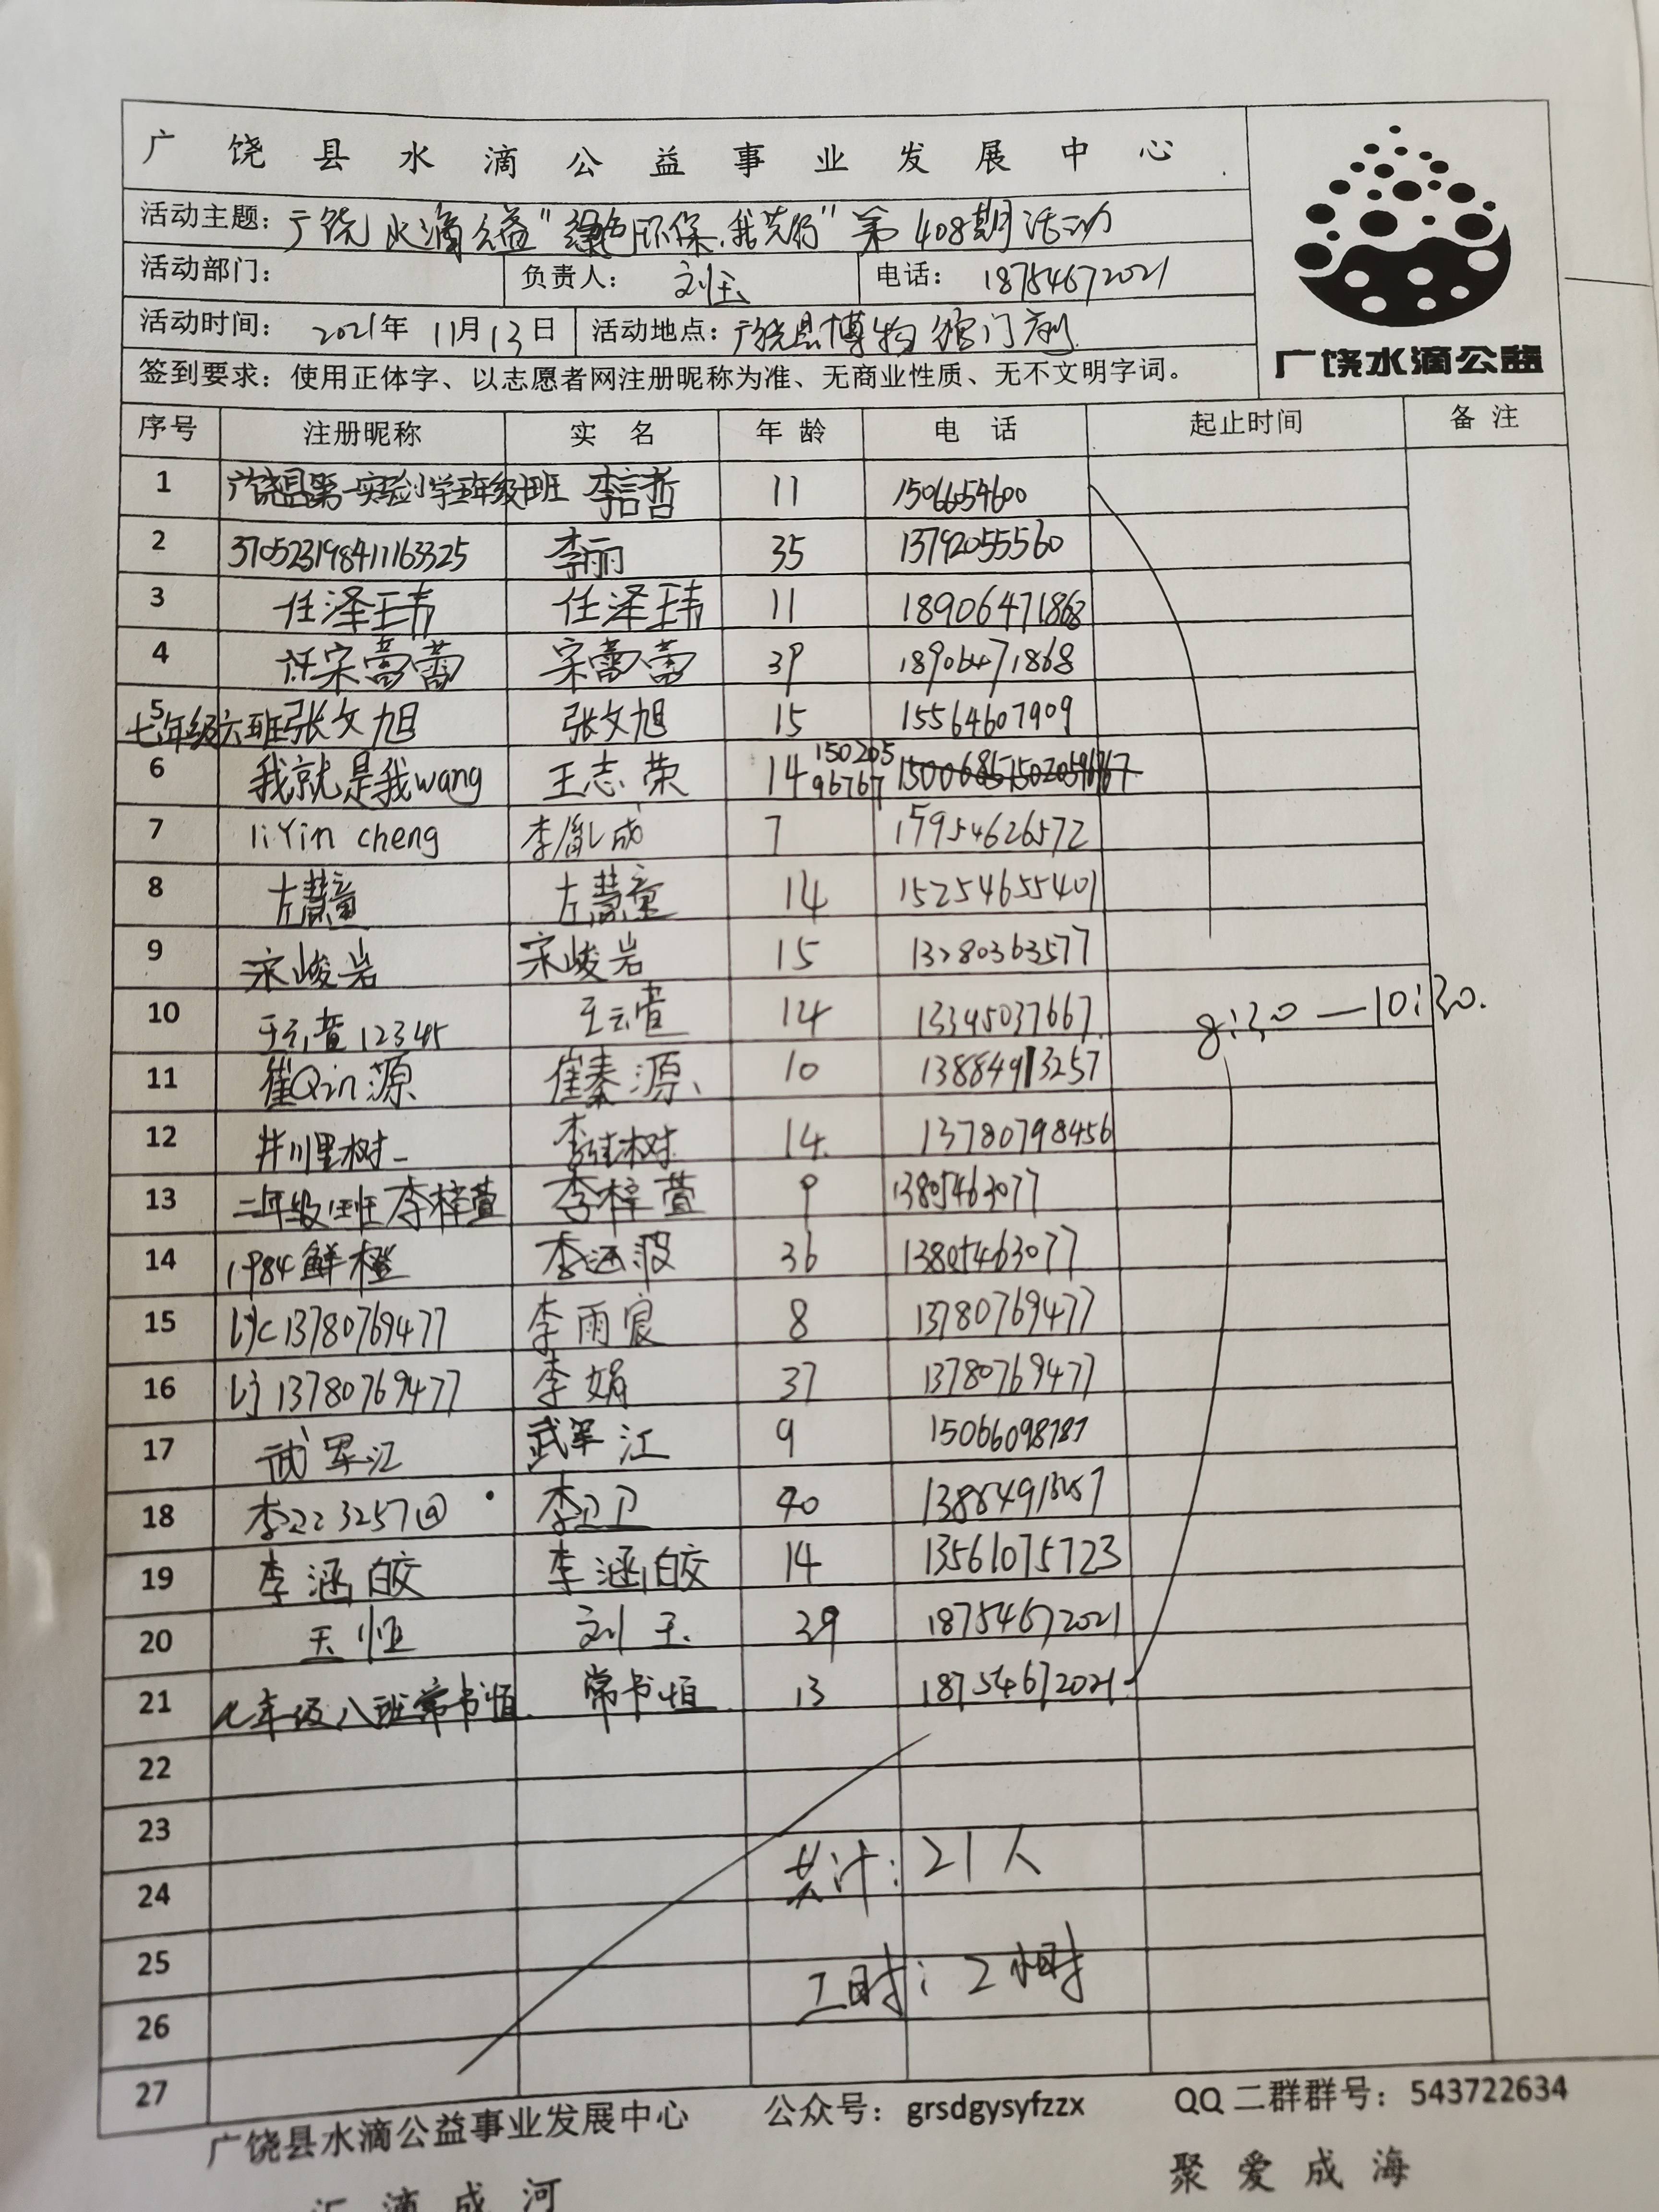 广饶县水滴公益事业发展中心
广饶水滴公益
活动主题：广饶水滴公益"绿色环保,我先行"第408期活动
活动部门： 负责人：刘玉 电话：18754672021
活动时间：2021年11月13日 活动地点：广饶县博物馆门前
签到要求：使用正体字、以志愿者网注册昵称为准、无商业性质、无不文明字词。
序号 注册昵称 实名 年龄 电话 起止时间 备注
1 广饶县第一实验小学五年级 班 李言哲 11 15066054600
2 370523198411163325 李丽 35 13792055560
3 任泽玮 任泽玮 11 18906471868
4 宋蕾蕾 宋蕾蕾 39 18906471868
5 七年级六班张文旭 张文旭 15 15564607909
6 我就是我wang 王志荣 14 15020596767
7 liYin cheng 李胤成 7 15954626572
8 左慧童 左慧童 14 15254655401
9 宋峻岩 宋峻岩 15 13280363577
10 12345 14 13345037667
8:30—10:30.
11 崔Qin源 崔秦源 10 13884913257
12 井川里树 14 13780798456
13 二年级 班李梓萱 李梓萱 9 13805463077
14 1984鲜橙 李 波 36 13805463077
15 lyc13780769477 李雨宸 8 13780769477
16 lj13780769477 李娟 37 13780769477
17 武军江 武军江 9 15066098787
18 李 3257@ 李卫卫 40 13884913257
19 李涵皎 李涵皎 14 13561075723
20 玉恒 刘玉 39 18754672021
21 七年级八班常书恒 常书恒 13 18754672021
22
23
共计：21人
24
25
工时：2小时
26
27
广饶县水滴公益事业发展中心 公众号：grsdgysyfzzx QQ二群群号：543722634
汇滴成河 聚爱成海